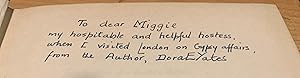 To dear Miggie
my hospitable and helpful hostess,
when I visited London on Gypsy affairs,
from the Author, Dora E. Yates